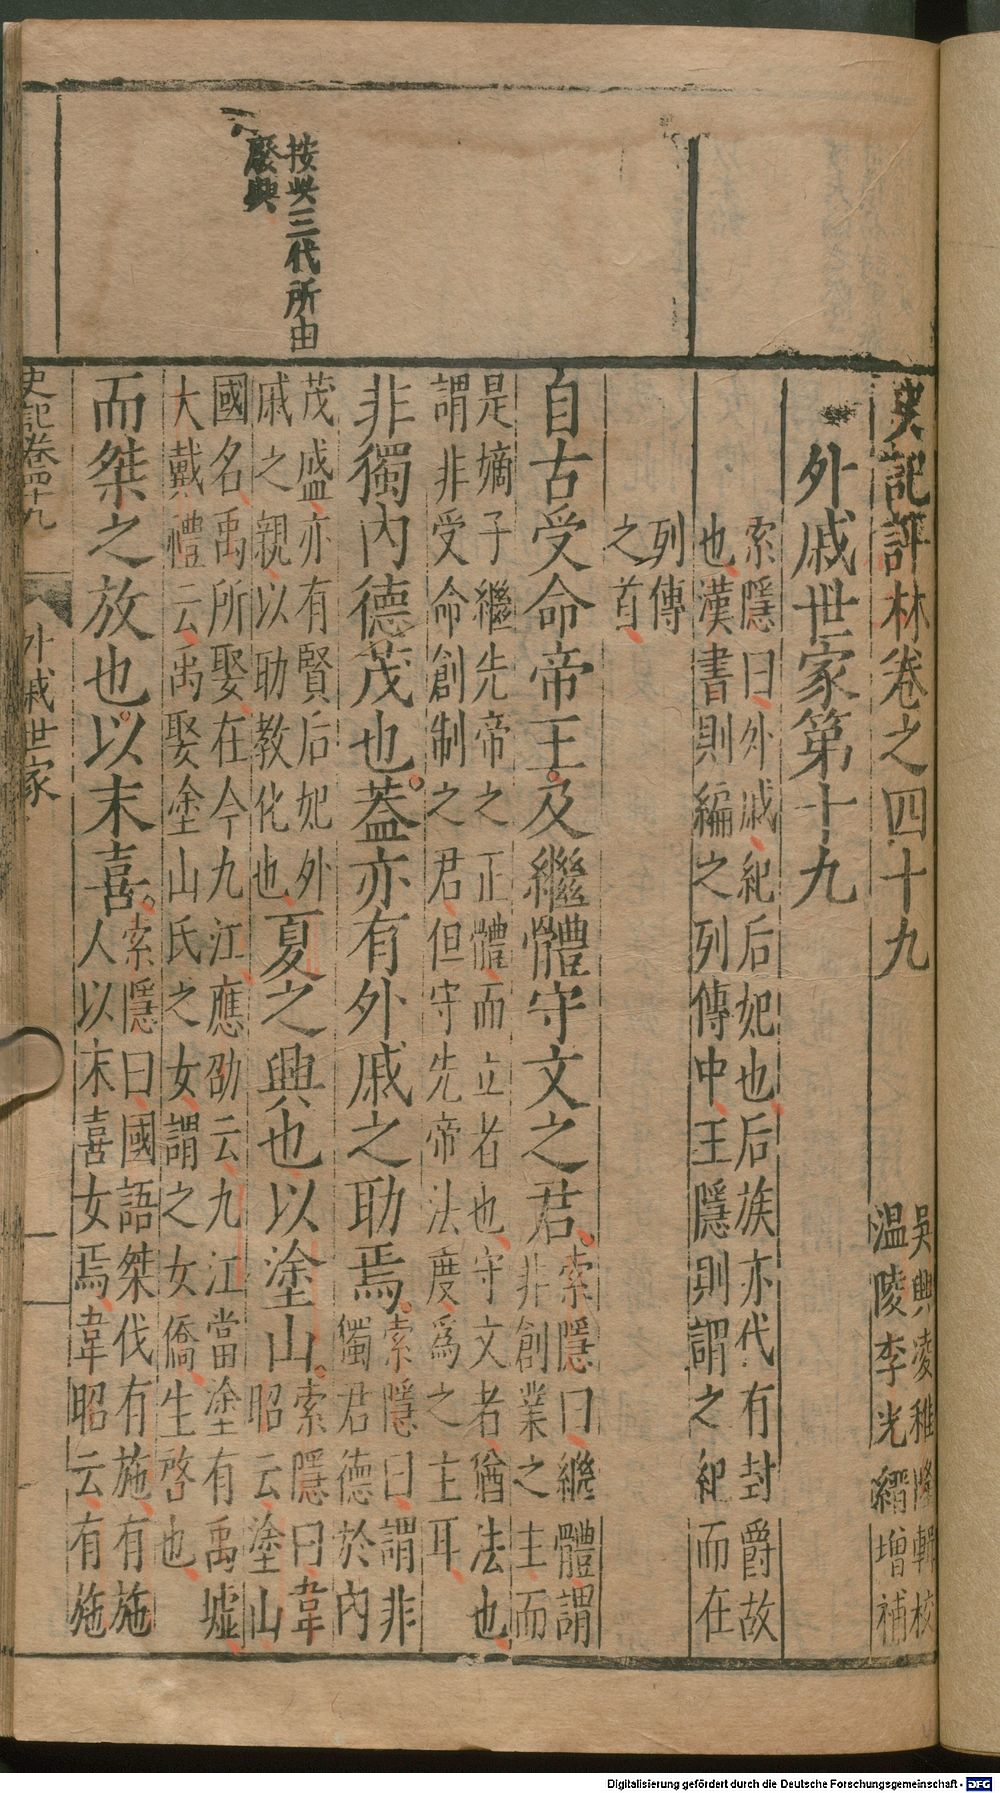 史記評林卷之四十九
吳興凌稚隆輯校
溫陵李光縉增補
外戚世家第十九
索隱曰外戚紀后妃也后族亦代有封爵故
也漢書則編之列傳中王隱則謂之紀而在
列傳
之首
自古受命帝王及繼體守文之君
索隱曰繼體謂
非創業之主而
是嫡子繼先帝之正體而立者也守文者猶法也
謂非受命創制之君但守先帝法度爲之主耳
非獨內德茂也蓋亦有外戚之助焉
索隱曰謂非
獨君德於內
茂盛亦有賢后妃外
戚之親以助教化也
夏之興也以塗山
索隱曰韋
昭云塗山
國名禹所娶在今九江應劭云九江當塗有禹墟
大戴禮云禹娶塗山氏之女謂之女僑生啓也
而桀之放也以末喜
索隱曰國語桀伐有施有施
人以末喜女焉韋昭云有施
按呉三代所由
廢興
史記卷四十九
外戚世家
一
Digitalisierung gefördert durch die Deutsche Forschungsgemeinschaft - DFG